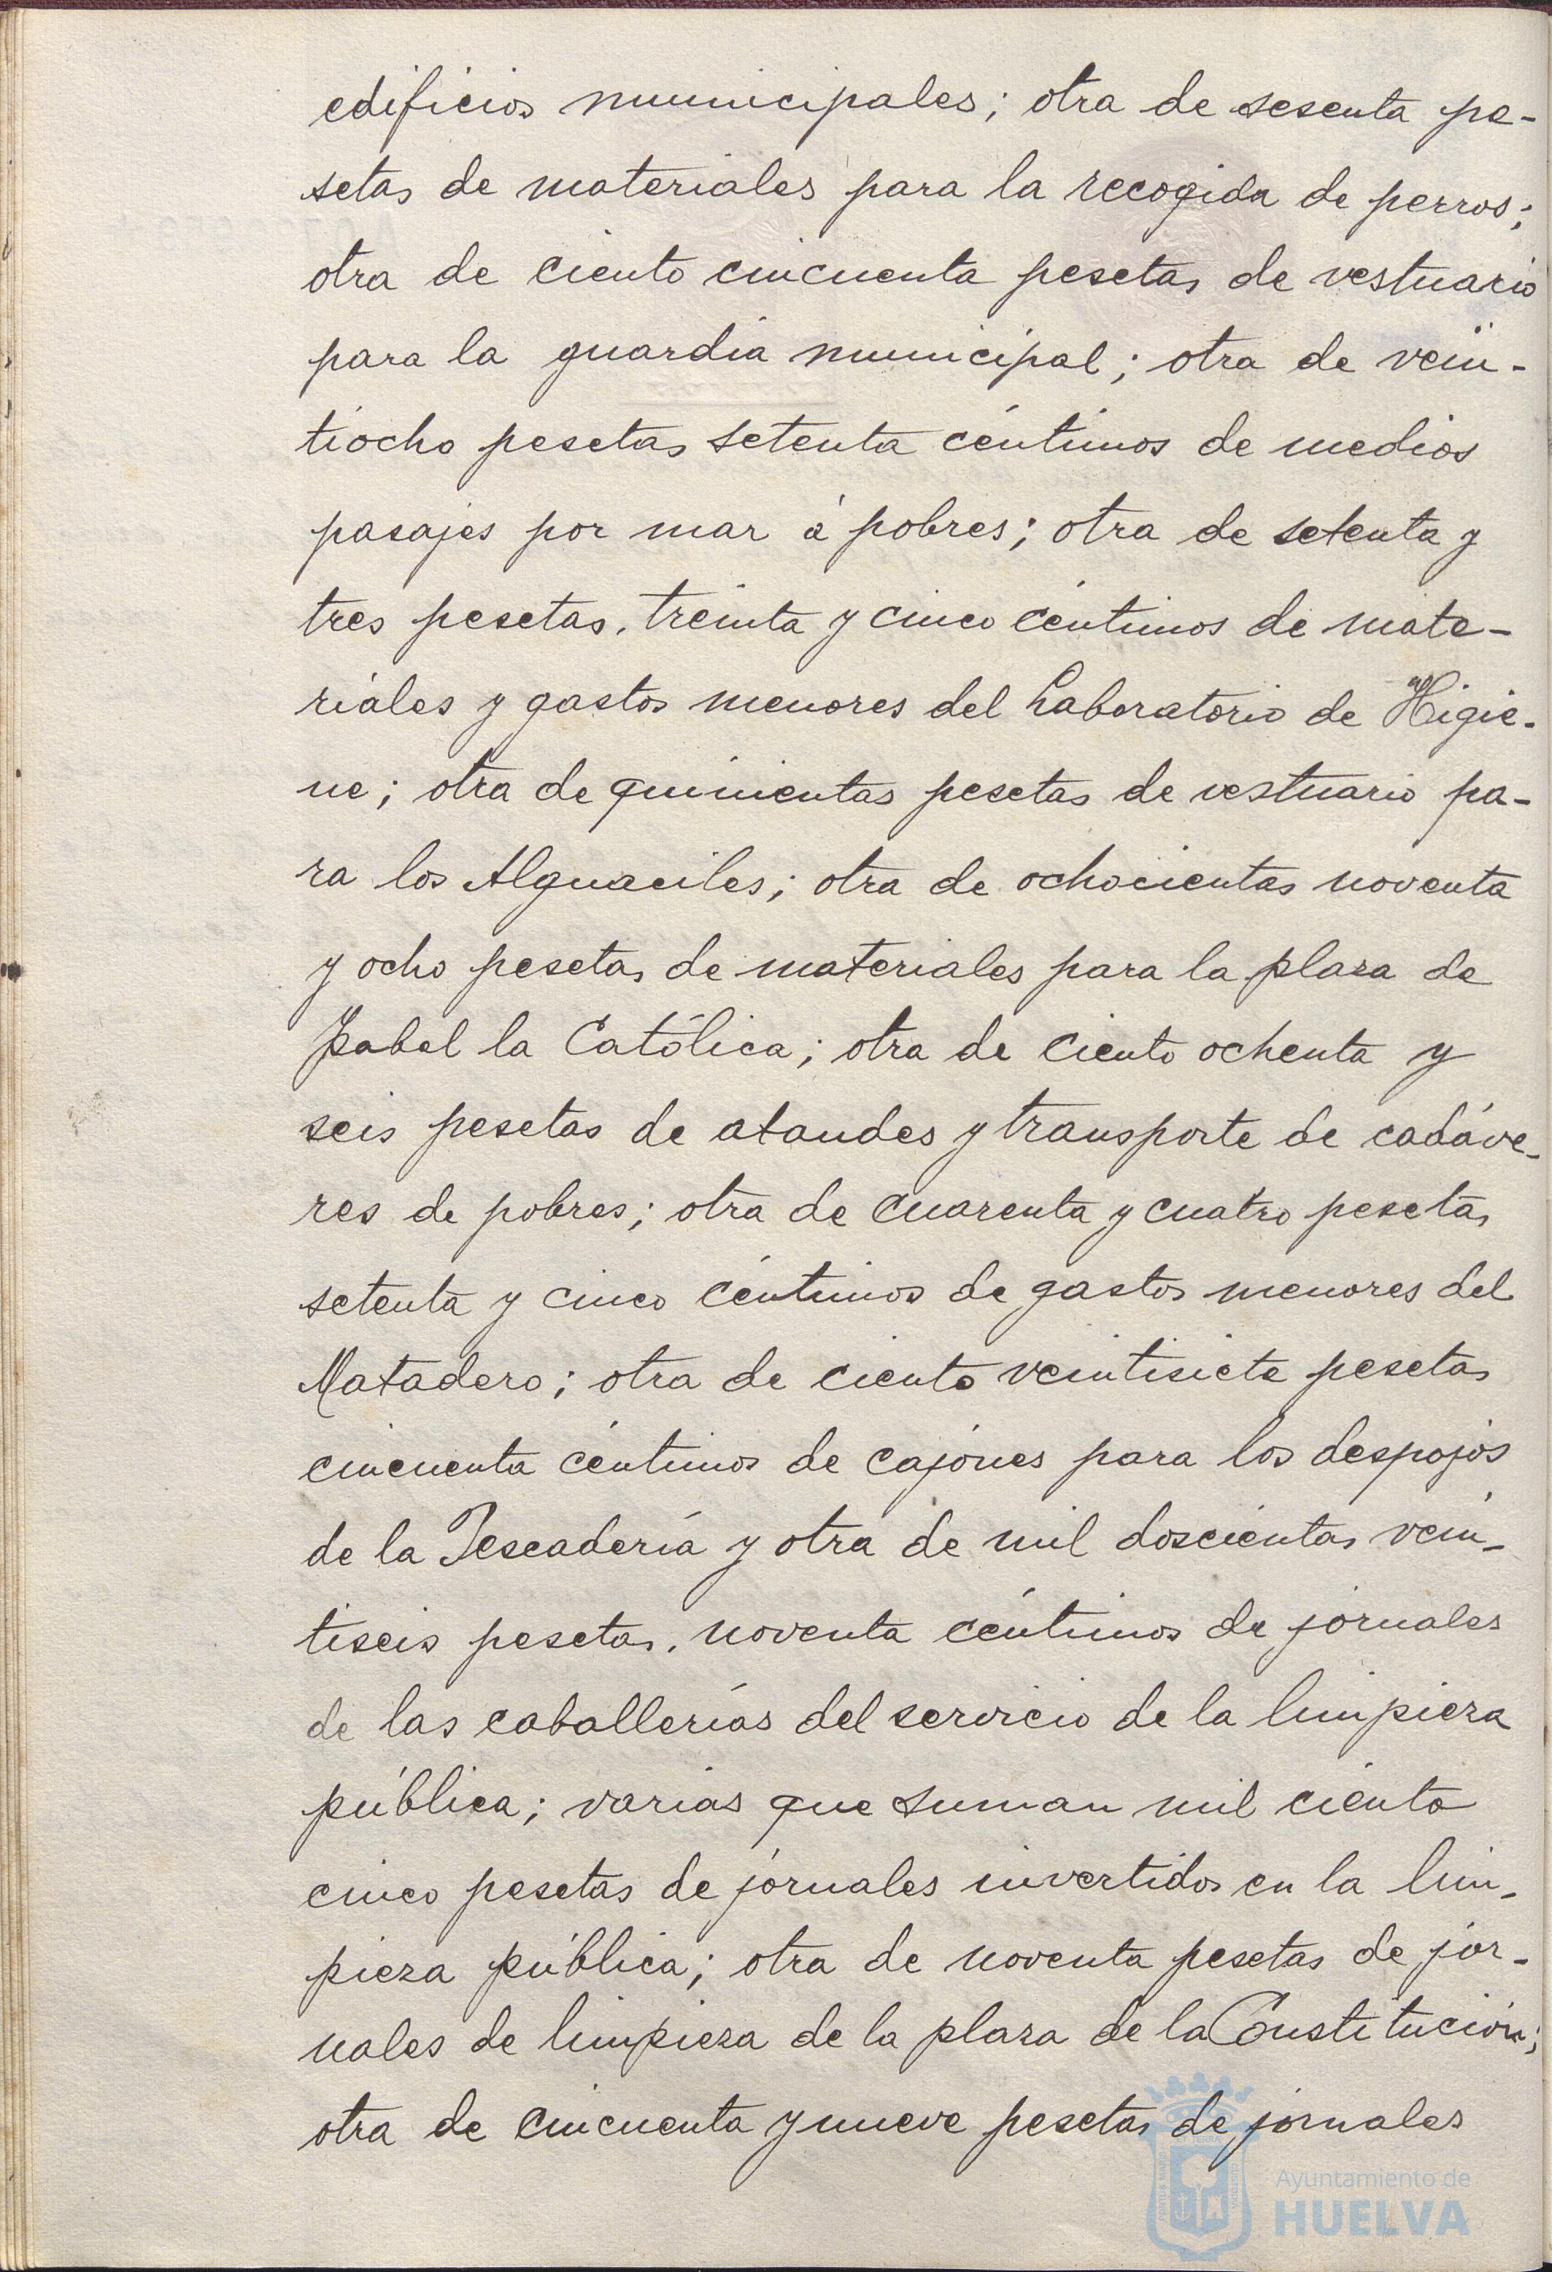 edificios municipales; otra de sesenta pe-
setas de materiales para la recogida de perros;
otra de ciento cincuenta pesetas de vestuario
para la guardia municipal; otra de vein-
tiocho pesetas setenta céntimos de medios
pasajes por mar á pobres; otra de setenta y
tres pesetas, treinta y cinco céntimos de mate-
riales y gastos menores del Laboratorio de Higie-
ne; otra de quinientas pesetas de vestuario pa-
ra los Alguaciles; otra de ochocientas noventa
y ocho pesetas de materiales para la plaza de
Isabel la Católica; otra de ciento ochenta y
seis pesetas de ataudes y transporte de cadáve-
res de pobres; otra de cuarenta y cuatro pesetas
setenta y cinco céntimos de gastos menores del
Matadero; otra de ciento veintisiete pesetas
cincuenta céntimos de cajones para los despojos
de la Pescadería y otra de mil doscientas vein-
tiseis pesetas, noventa céntimos de jornales
de las caballerías del servicio de la limpieza
pública; varias que suman mil ciento
cinco pesetas de jornales invertidos en la lim-
pieza pública; otra de noventa pesetas de jor-
nales de limpieza de la plaza de la Constitución;
otra de cincuenta y nueve pesetas de jornales
Ayuntamiento de
HUELVA